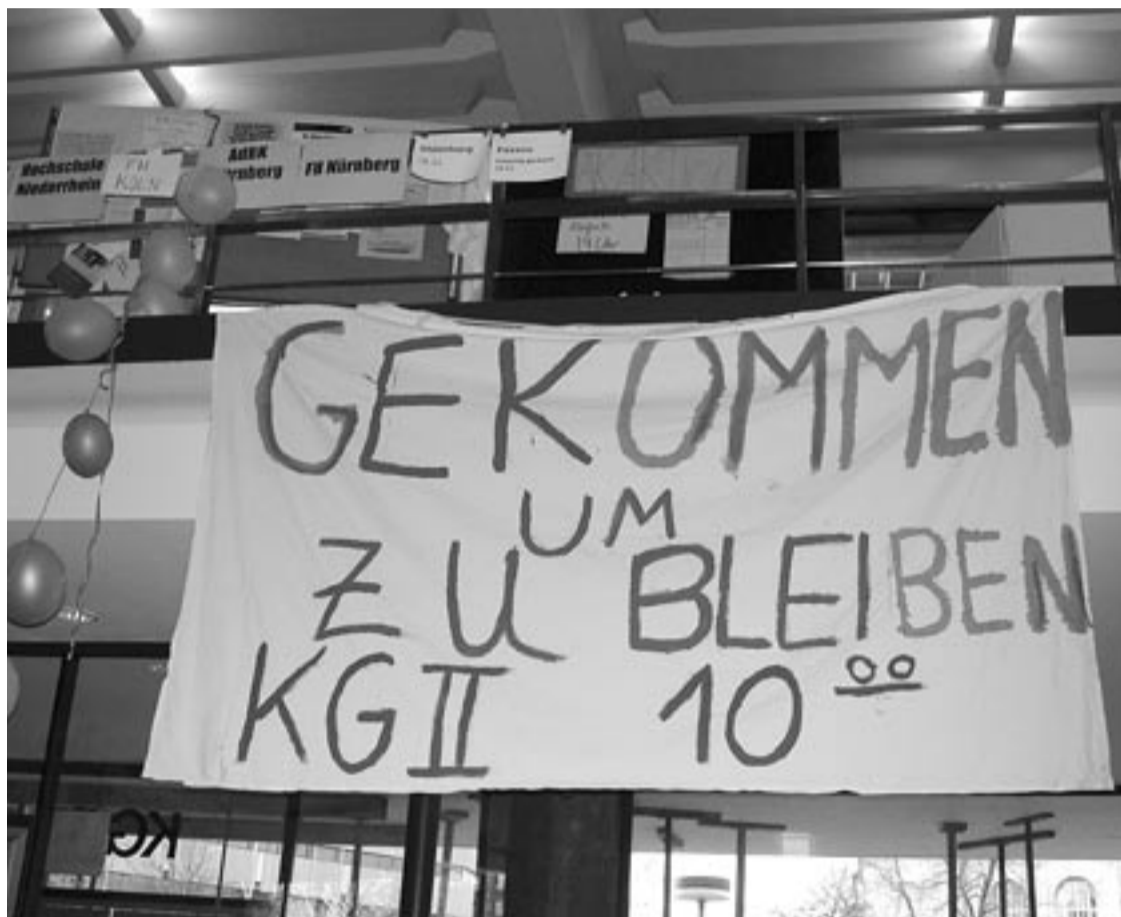 Hochschule
Niederrhein
FH
KÖLN
AdBK
FH Nürnberg
Passau
19 Uhr
GEKOMMEN
UM
ZU BLEIBEN
KG II 10 00
KG